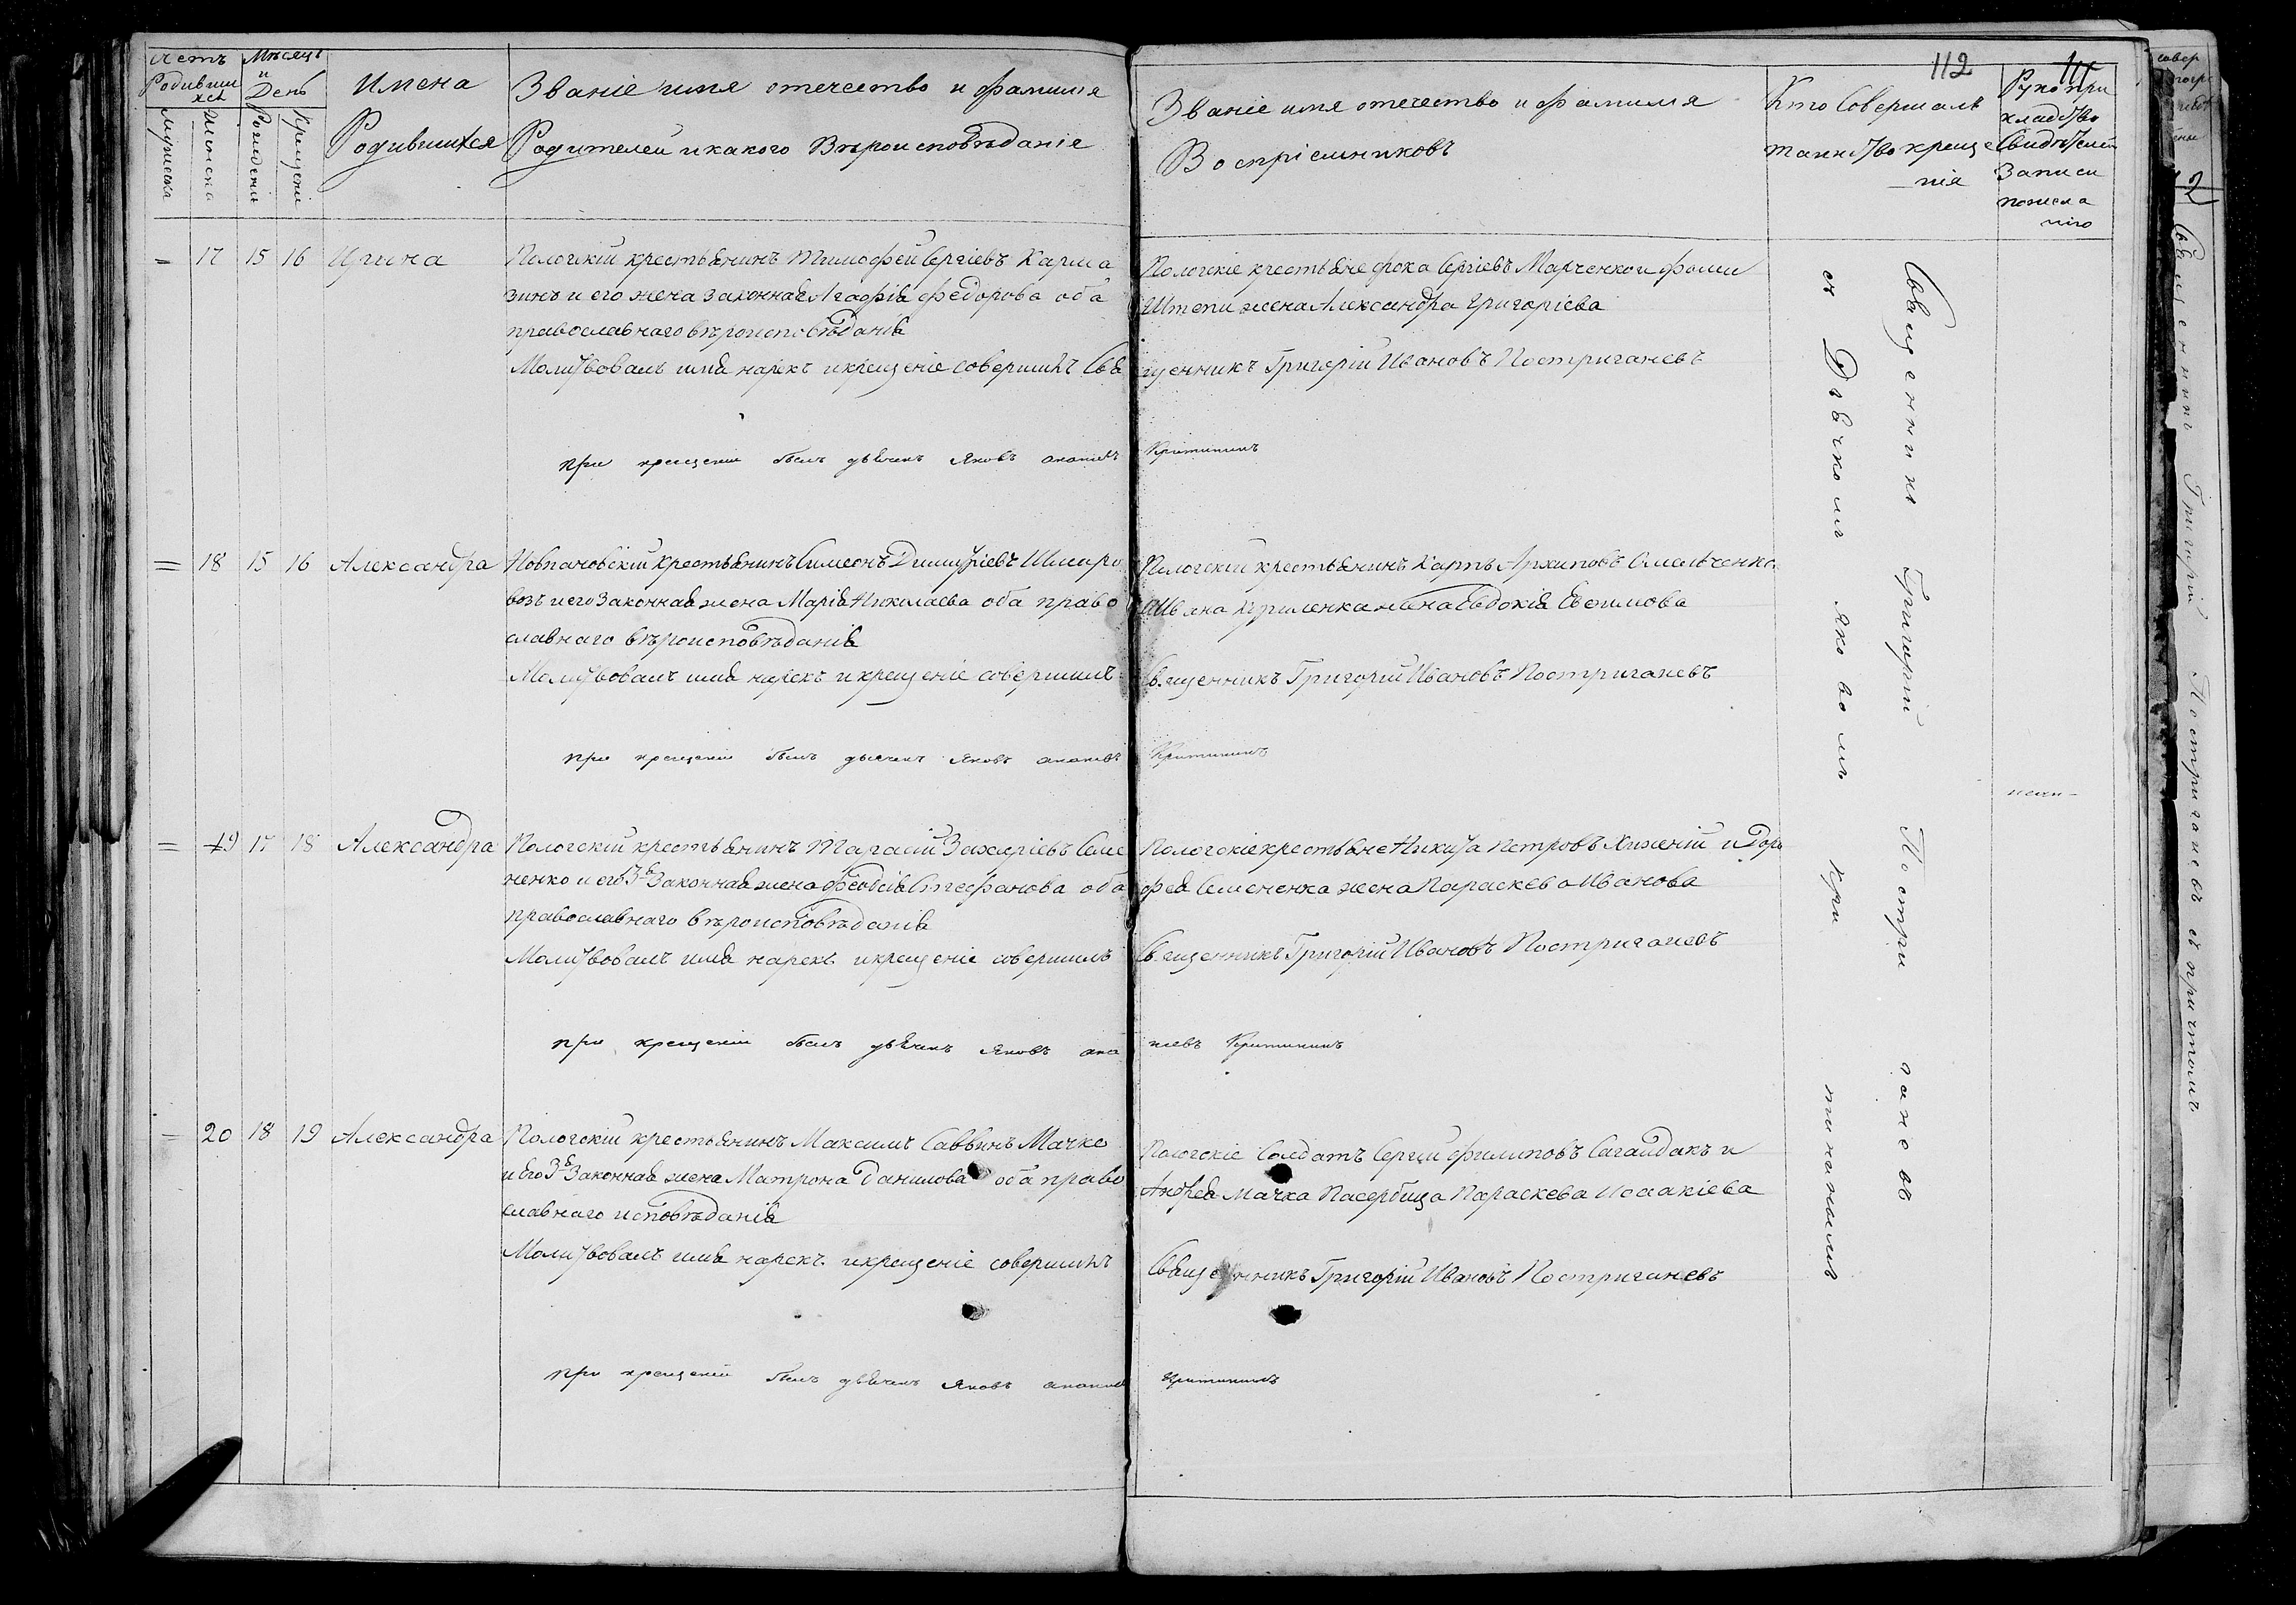 112
Счетъ Родившихся
Мѣсяцъ и День
Имена Родившихся
Званіе имя отечество и фамилія
Родителей и какого Вѣроисповѣданія
Званіе имя отечество и фамилія
Воспріемниковъ
Кто Совершалъ
таинство креще
нія
Рукопри
кладство
Свидѣтелей
Записи
по жела
нію
Мужеска
Женска
Рожденія
Крещенія
17 15 16 Ирина
Пологскій крестьянинъ Тимофей Сергіевъ Карма
зинъ и его жена законная Агафія Федорова оба
православнаго вѣроисповѣданія
Молитвовалъ имя нарекъ и крещеніе совершилъ Свя
при крещеніи былъ дьячекъ Яковъ
Пологскіе крестьяне Фока Сергіевъ Марченко и Фомы
жена Александра Григоріева
щенникъ Григорій Ивановъ Постриганевъ
18 15 16 Александра
крестьянинъ Симеонъ Димитріевъ
и его Законная жена Марія Николаева оба право
славнаго вѣроисповѣданія
Молитвовалъ имя нарекъ и крещеніе совершилъ
при крещеніи былъ дьячекъ Яковъ
Пологскій крестьянинъ Карпъ Архиповъ
Ивана Куриленка жена Евдокія Евфимова
Священникъ Григорій Ивановъ Постриганевъ
19 17 18 Александра
Пологскій крестьянинъ Тарасій Захаріевъ Семе
ненко и его 3я Законная жена Феодосія Стефанова оба
православнаго вѣроисповѣданія
Молитвовалъ имя нарекъ и крещеніе совершилъ
при крещеніи былъ дьячекъ Яковъ Ана
Пологскіе крестьяне Никита Петровъ и Доро
фея Семененка жена Параскева Иванова
Священникъ Григорій Ивановъ Постриганевъ
ніевъ
20 18 19 Александра
Пологскій крестьянинъ Максимъ Саввинъ Мачко
и его 3я Законная жена Матрона Данилова оба право
славнаго исповѣданія
Молитвовалъ имя нарекъ и крещеніе совершилъ
при крещеніи былъ дьячекъ Яковъ
Пологскіе Солдатъ Сергій Филиповъ Сагайдакъ и
Андрея Мачка Пасербица Параскева Исаакіева
Священникъ Григорій Ивановъ Постриганевъ
Священникъ Григорій Постриганевъ
съ Дьячкомъ Яковомъ
Священникъ Григорій Постриганевъ съ причтомъ